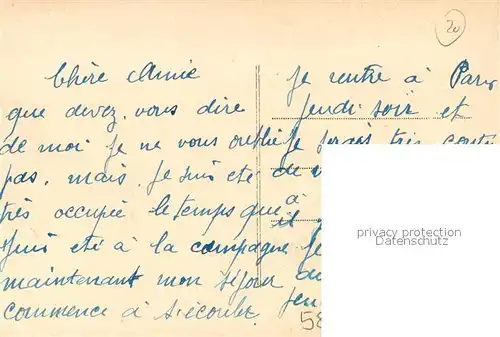 Chère Amie
que devez-vous dire
de moi je ne vous oublie
pas, mais je suis été
très occupée le temps que
suis été à la campagne
maintenant mon séjour
commence à s'écouler.
je rentre à Paris
jeudi soir et
je serais très cont
de
à
il
je
jeu
20
58
privacy protection
Datenschutz